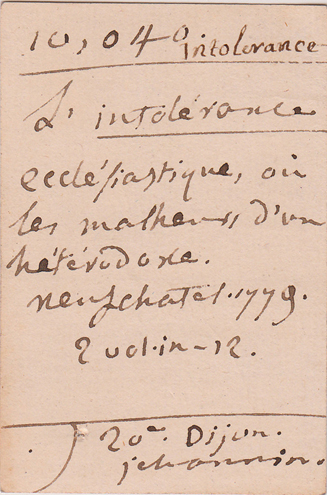 10,040 intolérance
L'intolérance
ecclésiastique, où
les malheurs d'un
hétérodoxe.
neufchatel. 1779.
2 vol. in-12.
20a. Dijon.
jehannin.